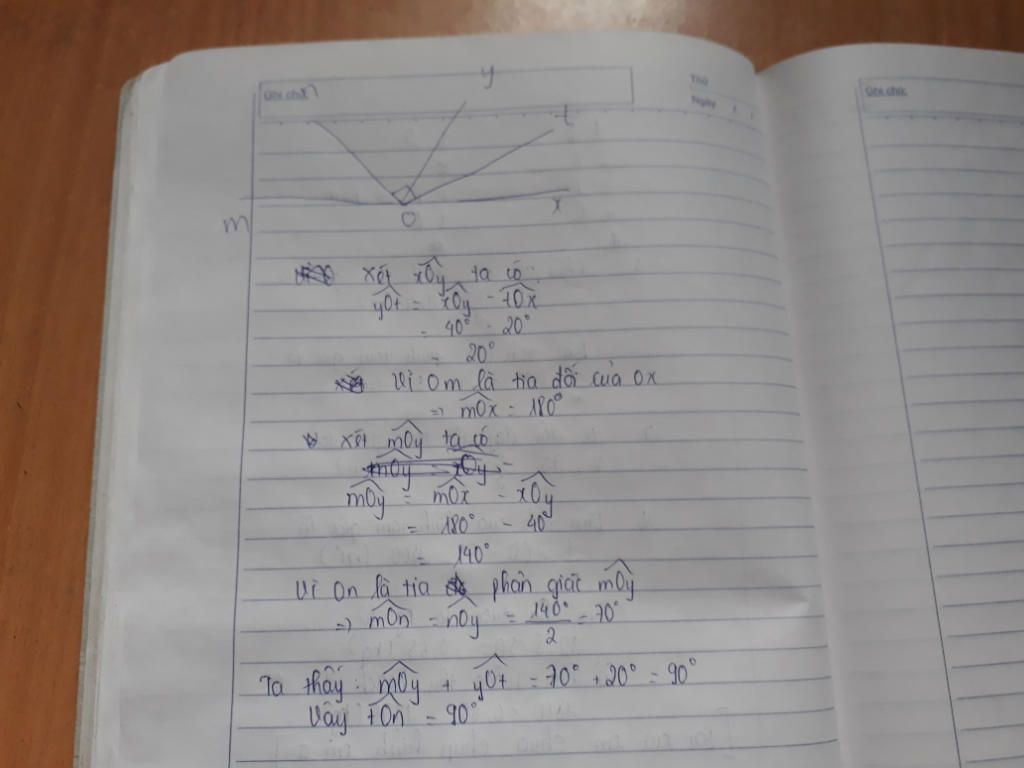 y
Ghi chú: n
Thứ
Ngày / /
Ghi chú:
t
m
O
x
Xét xOy ta có:
yOt = xOy - tOx
= 40° - 20°
= 20°
Vì Om là tia đối của Ox
=> mOx = 180°
xét mOy ta có
mOy = mOx - xOy
= 180° - 40°
= 140°
Vì On là tia phân giác mOy
=> mOn = nOy = 140°/2 = 70°
Ta thấy: mOy + yOt = 70° + 20° = 90°
Vậy tOn = 90°